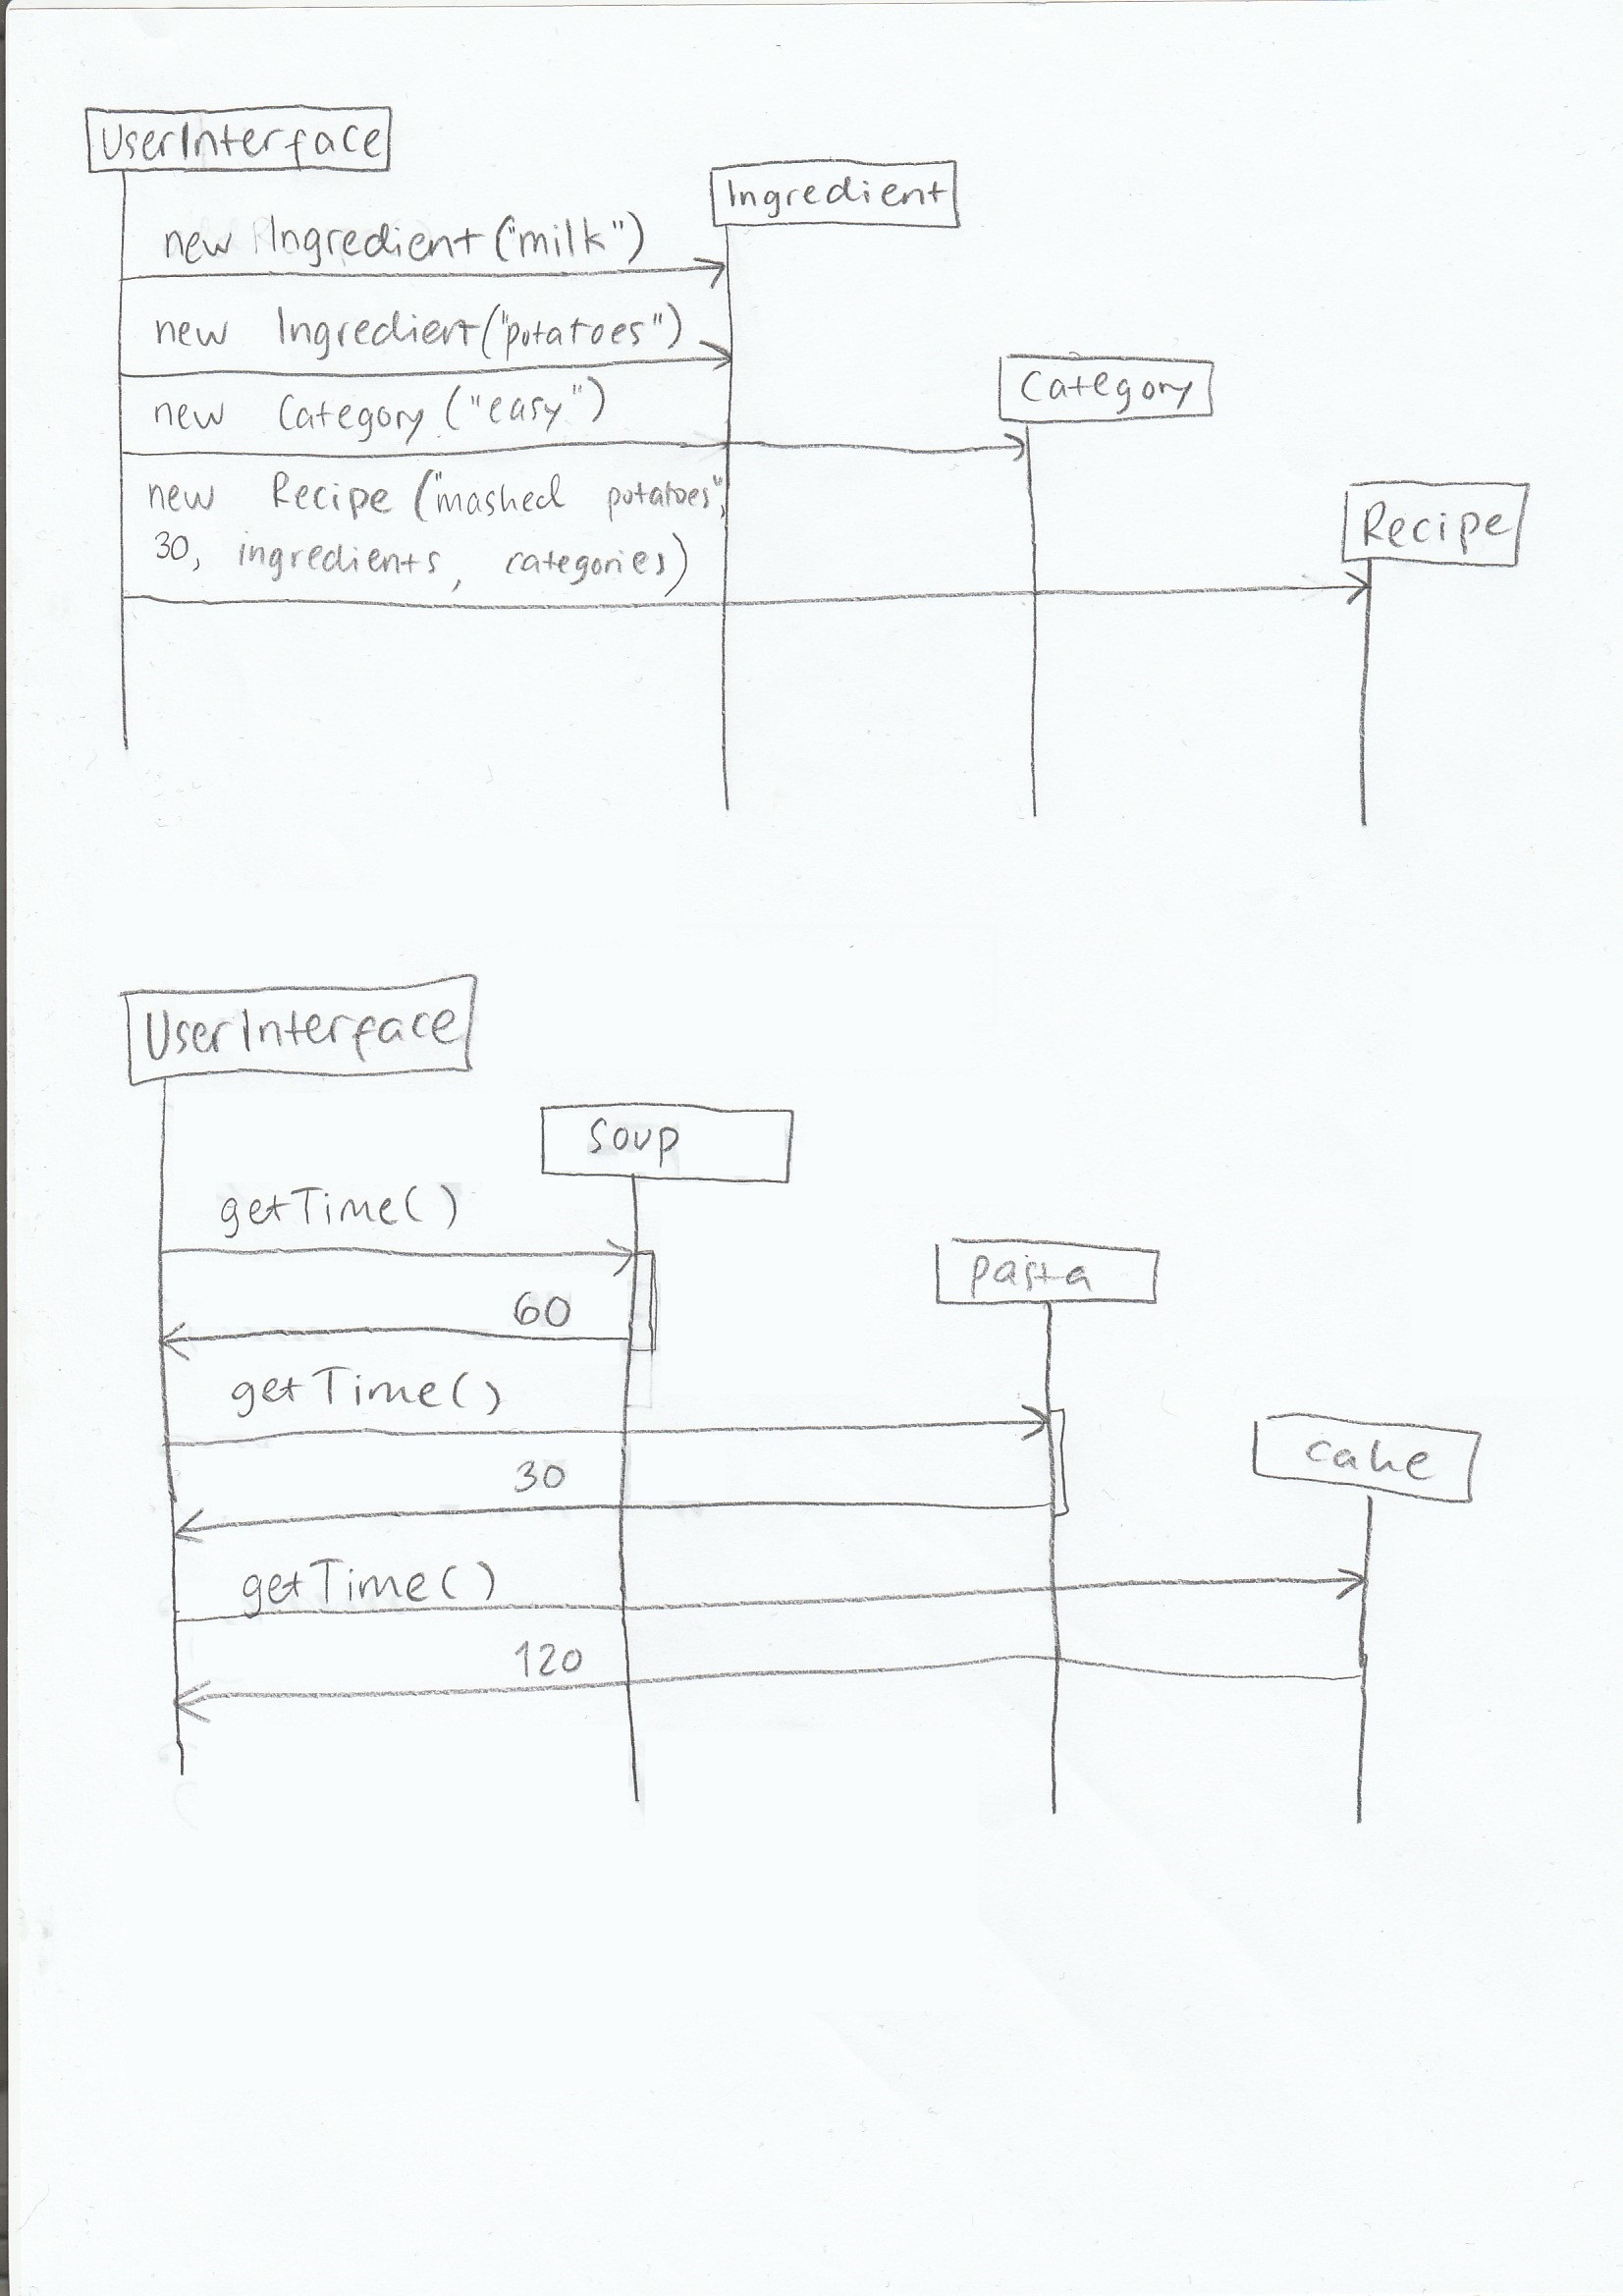 UserInterface
Ingredient
new Ingredient("milk")
new Ingredient("potatoes")
Category
new Category("easy")
new Recipe("mashed potatoes",
30, ingredients, categories)
Recipe
UserInterface
soup
getTime()
pasta
60
getTime()
cake
30
getTime()
120